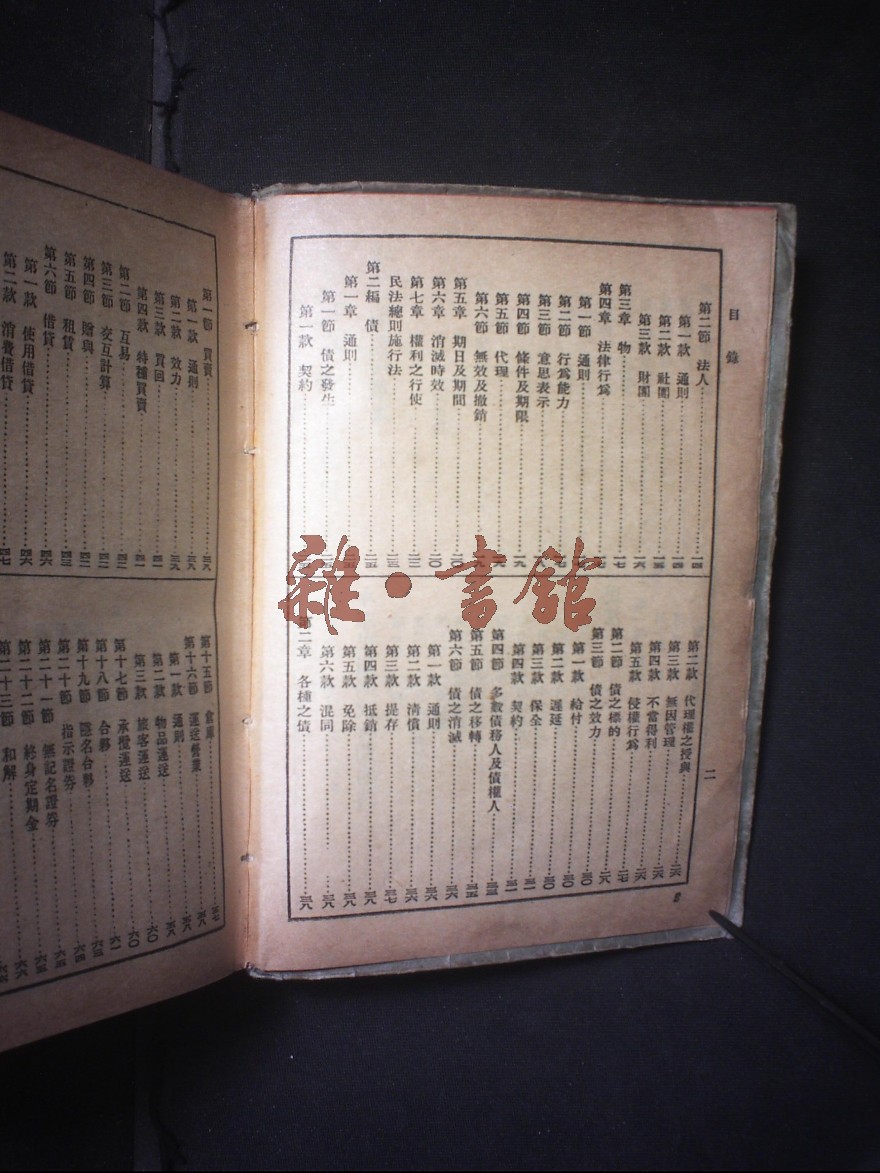 目錄
二
第二節 法人 一四
第一款 通則 一四
第二款 社團 一四
第三款 財團 一六
第三章 物 一七
第四章 法律行爲
第一節 通則
第二節 行爲能力
第三節 意思表示
第四節 條件及期限 一九
第五節 代理
第六節 無效及撤銷
第五章 期日及期間 二〇
第六章 消滅時效 二〇
第七章 權利之行使
民法總則施行法
第二編 債 二五
第一章 通則
第一節 債之發生
第一款 契約
第二款 代理權之授與 二六
第三款 無因管理 二六
第四款 不當得利 二六
第五款 侵權行爲 二六
第二節 債之標的 二七
第三節 債之效力 二八
第一款 給付
第二款 遲延 三〇
第三款 保全
第四款 契約 三一
第四節 多數債務人及債權人 三三
第五節 債之移轉 三五
第六節 債之消滅 三六
第一款 通則 三六
第二款 清償 三六
第三款 提存 三七
第四款 抵銷 三八
第五款 免除 三八
第六款 混同 三八
第二章 各種之債 三八
第一節 買賣 三九
第一款 通則 三九
第二款 效力 三九
第三款 買回 四一
第四款 特種買賣 四一
第二節 互易 四二
第三節 交互計算 四二
第四節 贈與 四二
第五節 租賃 四三
第六節 借貸 四六
第一款 使用借貸 四六
第二款 消費借貸 四七
第十五節 倉庫
第十六節 運送營業 五八
第一款 通則 五八
第二款 物品運送 五八
第三款 旅客運送 六〇
第十七節 承攬運送
第十八節 合夥 六一
第十九節 隱名合夥
第二十節 指示證券
第二十一節 無記名證券
第二十二節 終身定期金
第二十三節 和解
雜·書館